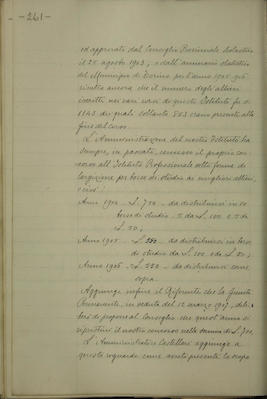 - 261 -
ed approvato dal Consiglio Provinciale Scolastico
il 25 agosto 1903; e dall'annuario statistico
del Municipio di Torino per l'anno 1905 già
risulta ancora che il numero degli allievi
iscritti nei vari corsi di questo Istituto fu di
1143 dei quali soltanto 803 erano presenti alla
fine del corso.
L'Amministrazione del nostro Istituto ha
sempre, in passato, concesso il proprio con-
corso all'Istituto Professionale sotto forma di
largizione per borse di studio ai migliori allievi,
e così:
Anno 1904 - L. 750 - da distribuirsi in
borse di studio - 5 da L. 100 e 5 da
L. 50;
Anno 1905 - L. 550 - da distribuirsi in borse
di studio da L. 100 e da L. 50;
Anno 1906 - L. 550 - da distribuirsi come
sopra.
Aggiunge infine il Riferente che la Giunta
in seduta del 12 marzo 1907, deli-
berò di proporre al Consiglio che quest'anno si
ripristini il nostro concorso nella somma di L. 700.
L'Amministratore Castellari aggiunge a
questo riguardo come avesse presente lo scopo